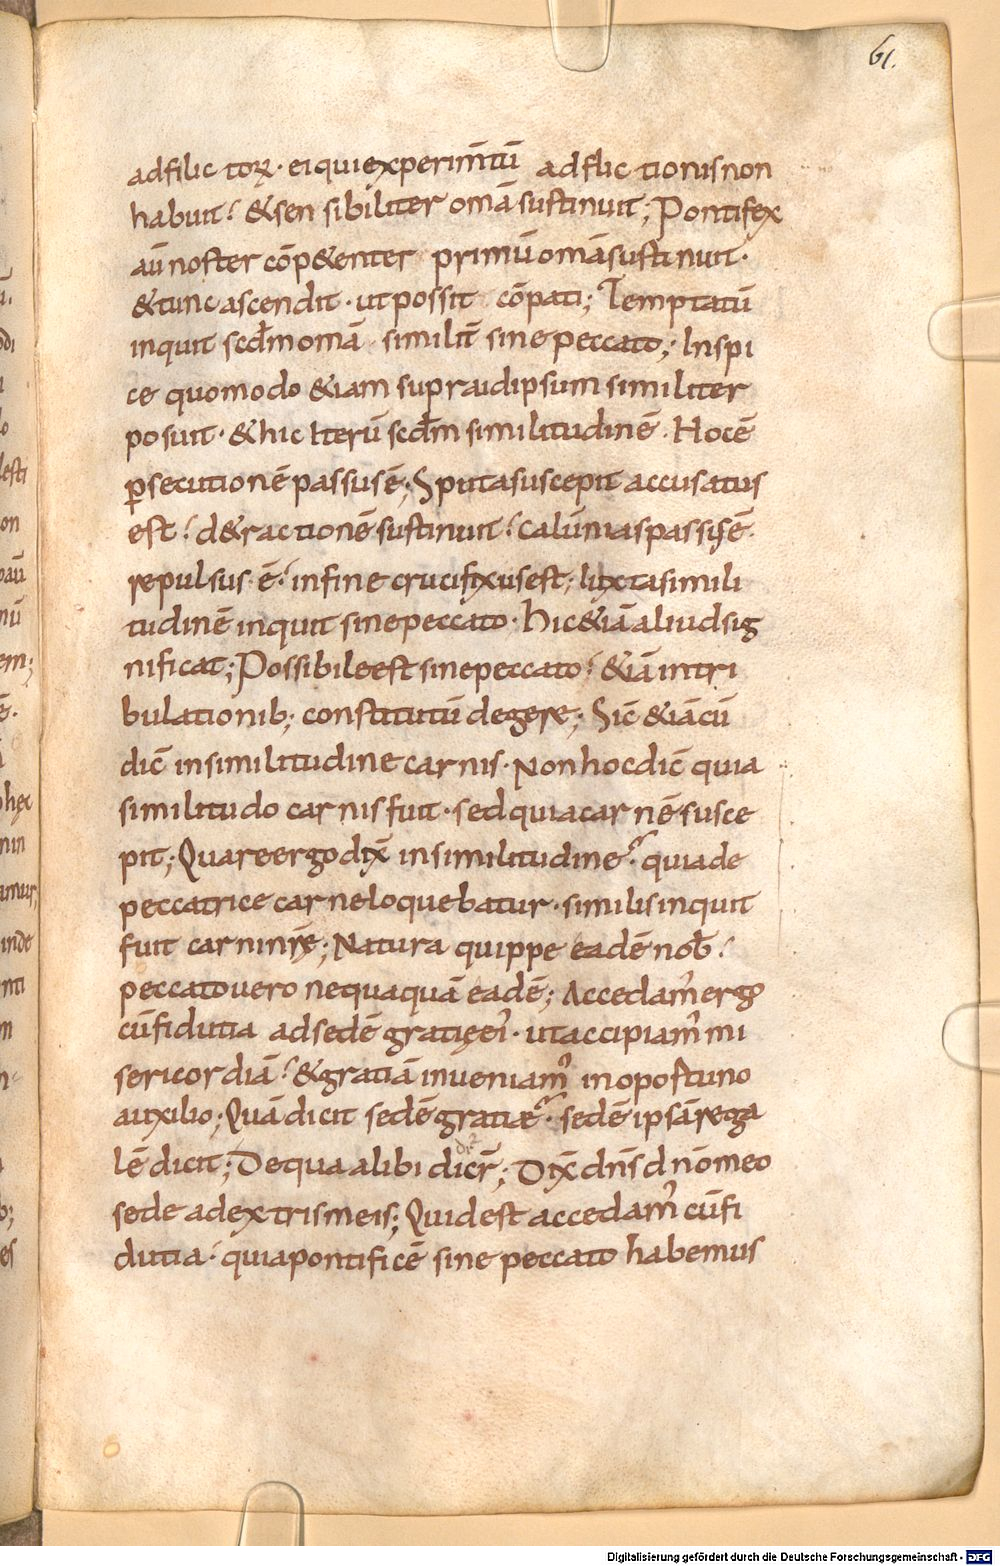 61.
adfilic torꝝ · ei qui experim̄tū adflic tionis non
habuit! & sen sibiliter omā sustinuit; Pontifex
aū noster cōp&enter primū omā sustinuit ·
& tunc ascendit · ut possit cōpati; Temptatū
inquit scd̄m omā · similit̄ sine peccato; Inspi
ce quomodo &iam supra idipsum similiter
posuit · & hic Iterū scd̄m similitudinē · Hoc ē
ꝑsecutionē passus ē; Sputa suscepit accusatus
est! d&ractionē sustinuit! calūnias passus ē ·
repulsus · ē! in fine crucifixus est; Iuxta simili
tudinē inquit sine peccato · hic &iā aliud sig
nificat; Possibile est sine peccato! &iā in tri
bulationib; constitutū degere; Sic̄ &iā cū
dic̄ in similitudine carnis · Non hoc dic̄ quia
similitudo carnis fuit · sed quia carnē susce
pit; Quare ergo dix̄ in similitudine? quia de
peccatrice carne loquebatur · similis inquit
fuit carni nr̄ę; Natura quippe eadē nob̄!
peccato vero nequaquā eadē; Accedam᾽ ergo
cū fidutia ad sedē gratię ei᾽ · ut accipiam᾽ mi
sericordiā! & gratiā inveniam᾽ in oportuno
auxilio; Quā dicit sedē gratiæ? sedē ipsā rega
lē dicit; De qua alibi dicr̄; Dix̄ dn̄s d nōmeo
sede ad extris meis; Quid est accedam᾽ cū fi
dutia · quia pontificē sine peccato habemus
Digitalisierung gefördert durch die Deutsche Forschungsgemeinschaft - DFG